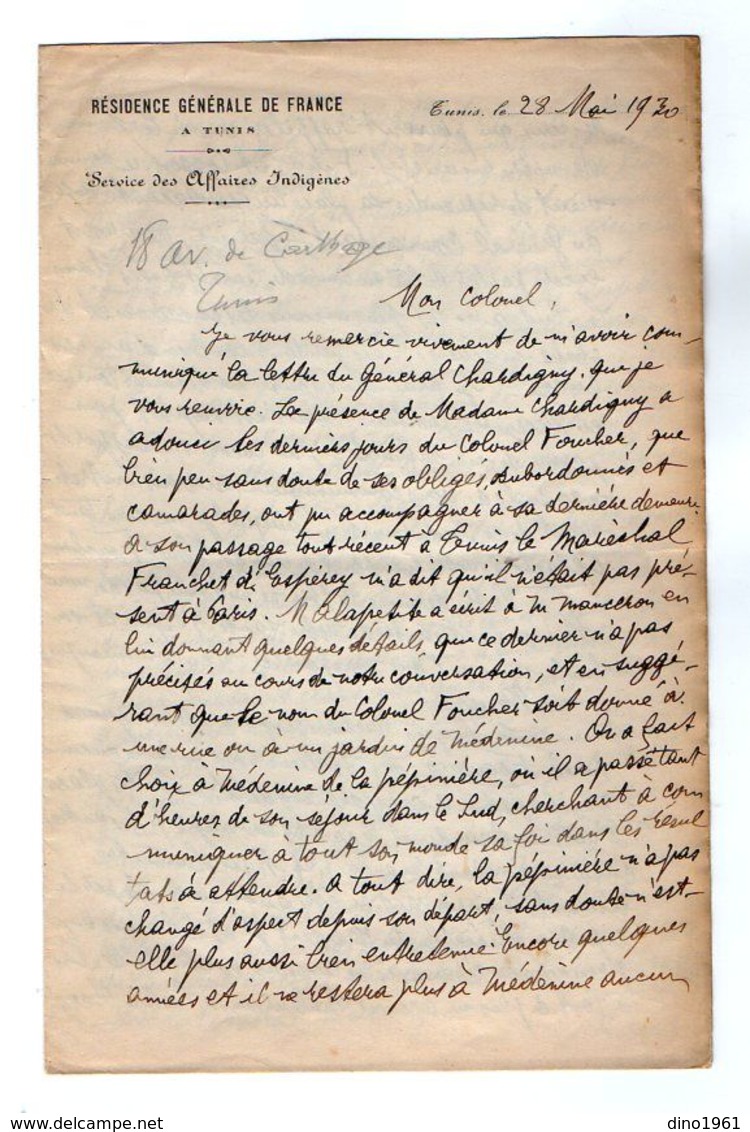 RÉSIDENCE GÉNÉRALE DE FRANCE
A TUNIS
Service des Affaires Indigènes
Tunis, le 28 Mai 1930
18 av. de Carthage
Tunis
Mon Colonel,
Je vous remercie vivement de m'avoir com-
muniqué la lettre du Général Chardigny, que je
vous renvoie. La présence de Madame Chardigny a
adouci les derniers jours du Colonel Foucher, que
bien peu sans doute de ses obligés, subordonnés et
camarades, ont pu accompagner à sa dernière demeure.
A son passage tout récent à Tunis le Maréchal
Franchet d'Espérey m'a dit qu'il n'était pas pré-
sent à Paris. M Lapetite a écrit à M Manceron en
lui donnant quelques détails, que ce dernier n'a pas
précisés au cours de notre conversation, et en suggé-
rant que le nom du Colonel Foucher soit donné à
une rue ou à un jardin de Médenine. On a fait
choix à Médenine de la pépinière, où il a passé tant
d'heures de son séjour dans le Sud, cherchant à com
muniquer à tout son monde sa foi dans les résul
tats à attendre. A tout dire, la pépinière n'a pas
changé d'aspect depuis son départ, sans doute n'est-
elle plus aussi bien entretenue. Encore quelques
années et il ne restera plus à Médenine aucun
delcampe.net
dino1961